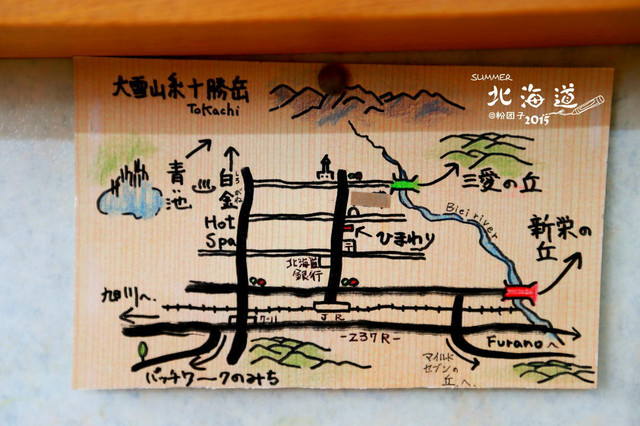 大雪山系十勝岳
Tokachi
SUMMER
北海道
@粉团子 2015
青い池
白金
しろがね
Hot
Spa
三愛の丘
Biei river
新栄の
丘
ひまわり
北海道
銀行
旭川へ
7-11
JR
-237R-
Furanoへ
パッチワークのみち
マイルド
セブンの
丘へ